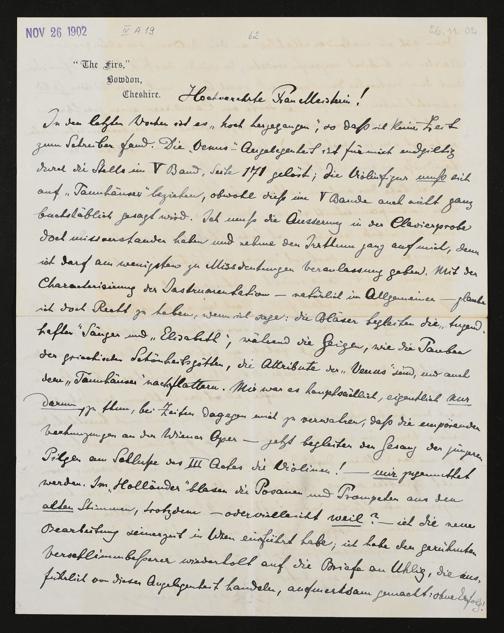 NOV 26 1902
IV A 19
62
26.11.02
"The Firs,"
Bowdon,
Cheshire.
Hochverehrte Frau Meisterin!
In den letzten Wochen ist es "hoch hergegangen", so daß ich keine Zeit
zum Schreiben fand. Die "Venus"-Angelegenheit ist für mich endgiltig
durch die Stelle im V Band, Seite 178 gelöst; die Violinfigur muß sich
auf "Tannhäuser" beziehen, obwohl dieß im V Bande auch nicht ganz
buchstäblich gesagt wird. Ich muß die Äusserung in der Clavierprobe
doch missverstanden haben und nehme den Irrthum ganz auf mich, denn
ich darf am wenigsten zu Missdeutungen Veranlassung geben. Mit der
Characterisirung der Instrumentation — natürlich im Allgemeinen — glaube
ich doch Recht zu haben, wenn ich sage: die Bläser begleiten die "tugend-
haften" Sänger und "Elisabeth", während die Geigen, wie die Tauben
der griechischen Schönheitsgöttin, die Attribute der "Venus" sind, und auch
dem "Tannhäuser" nachflattern. Mir war es hauptsächlich, eigentlich nur
darum, zu thun, bei Zeiten dagegen mich zu verwahren, daß die empörenden
an der Wiener Oper — jetzt begleiten den Gesang der jüngeren
Pilger am Schluße des III Actes die Violinen! — mir zugemuthet
werden. Im "Holländer" blasen die Posaunen und Trompeten aus den
alten Stimmen, trotzdem — oder vielleicht weil? — ich die neue
Bearbeitung seinerzeit in Wien eingeführt habe; ich habe den berühmten
Verschlimmbesserer wiederholt auf die Briefe an Uhlig, die aus-
führlich von dieser Angelegenheit handeln, aufmerksam gemacht: ohne Erfolg!